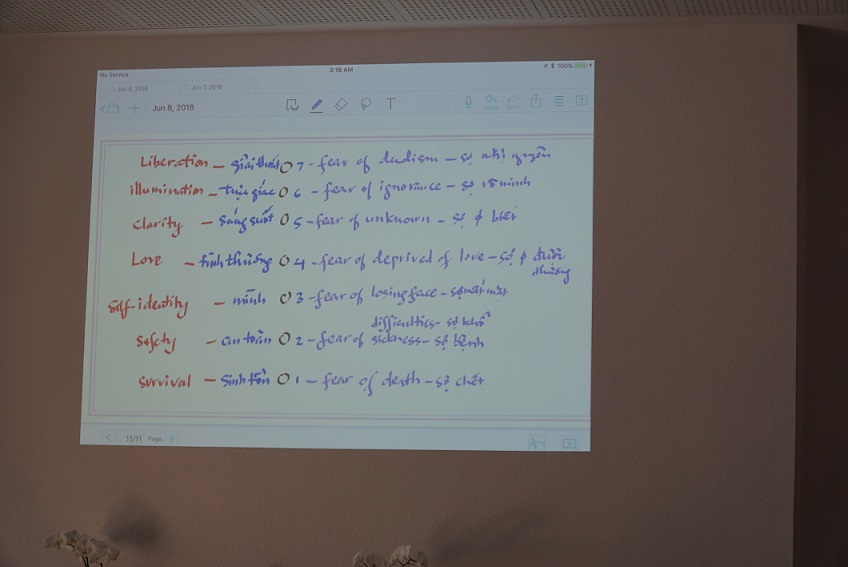 No Service
3:18 AM
100%
Jun 8, 2018
Jun 7, 2018
Jun 8, 2018
T
Liberation – giải thoát O 7 - fear of dualism – sợ nhị nguyên
illumination – trực giác O 6 - fear of ignorance – sợ vô minh
Clarity – Sáng suốt O 5 - fear of unknown - sợ ϕ biết
Love – tình thương O 4 - fear of deprived of love - sợ ϕ được
thương
Self-identity – mình O 3 - fear of losing face - sợ mất mặt
difficulties - sợ khổ
Safety – an toàn O 2 - fear of sickness - sợ bệnh
Survival – Sinh tồn O 1 - fear of death - sợ chết
11/11 Page